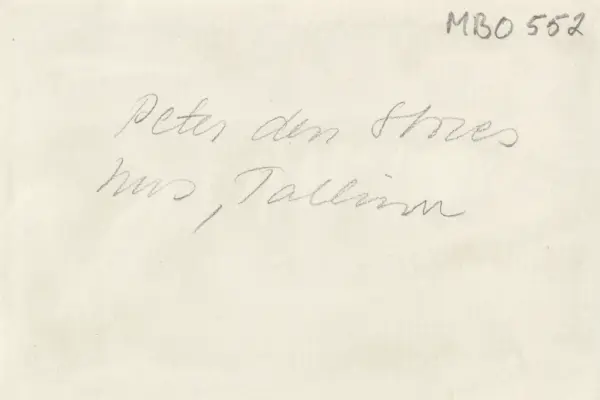 MBO 552
Peter den Stores
hus, Tallinn